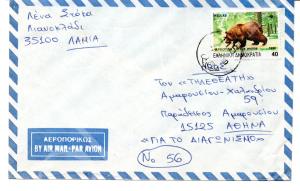 Λένα Στότα
Λιανοκλάδι
35100 ΛΑΜΙΑ
ΕΛΛΗΝΙΚΗ ΔΗΜΟΚΡΑΤΙΑ
40
Του «ΤΗΛΕΘΕΑΤΗ»
Αμαρουσίου-Χαλανδρίου
59
Παράδεισος Αμαρουσίου
15125 ΑΘΗΝΑ
«ΓΙΑ ΤΟ ΔΙΑΓΩΝΙΣΜΟ»
No 56
ΑΕΡΟΠΟΡΙΚΩΣ
BY AIR MAIL-PAR AVION